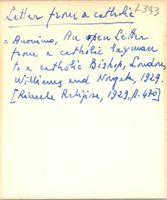 Letter from a catholic L393
= Anonimo, An open Letter
from a catholic layman
to a catholic Bishop, London,
Williams and Norgate, 1929.
[Ricerche Religiose, 1929, p. 470]